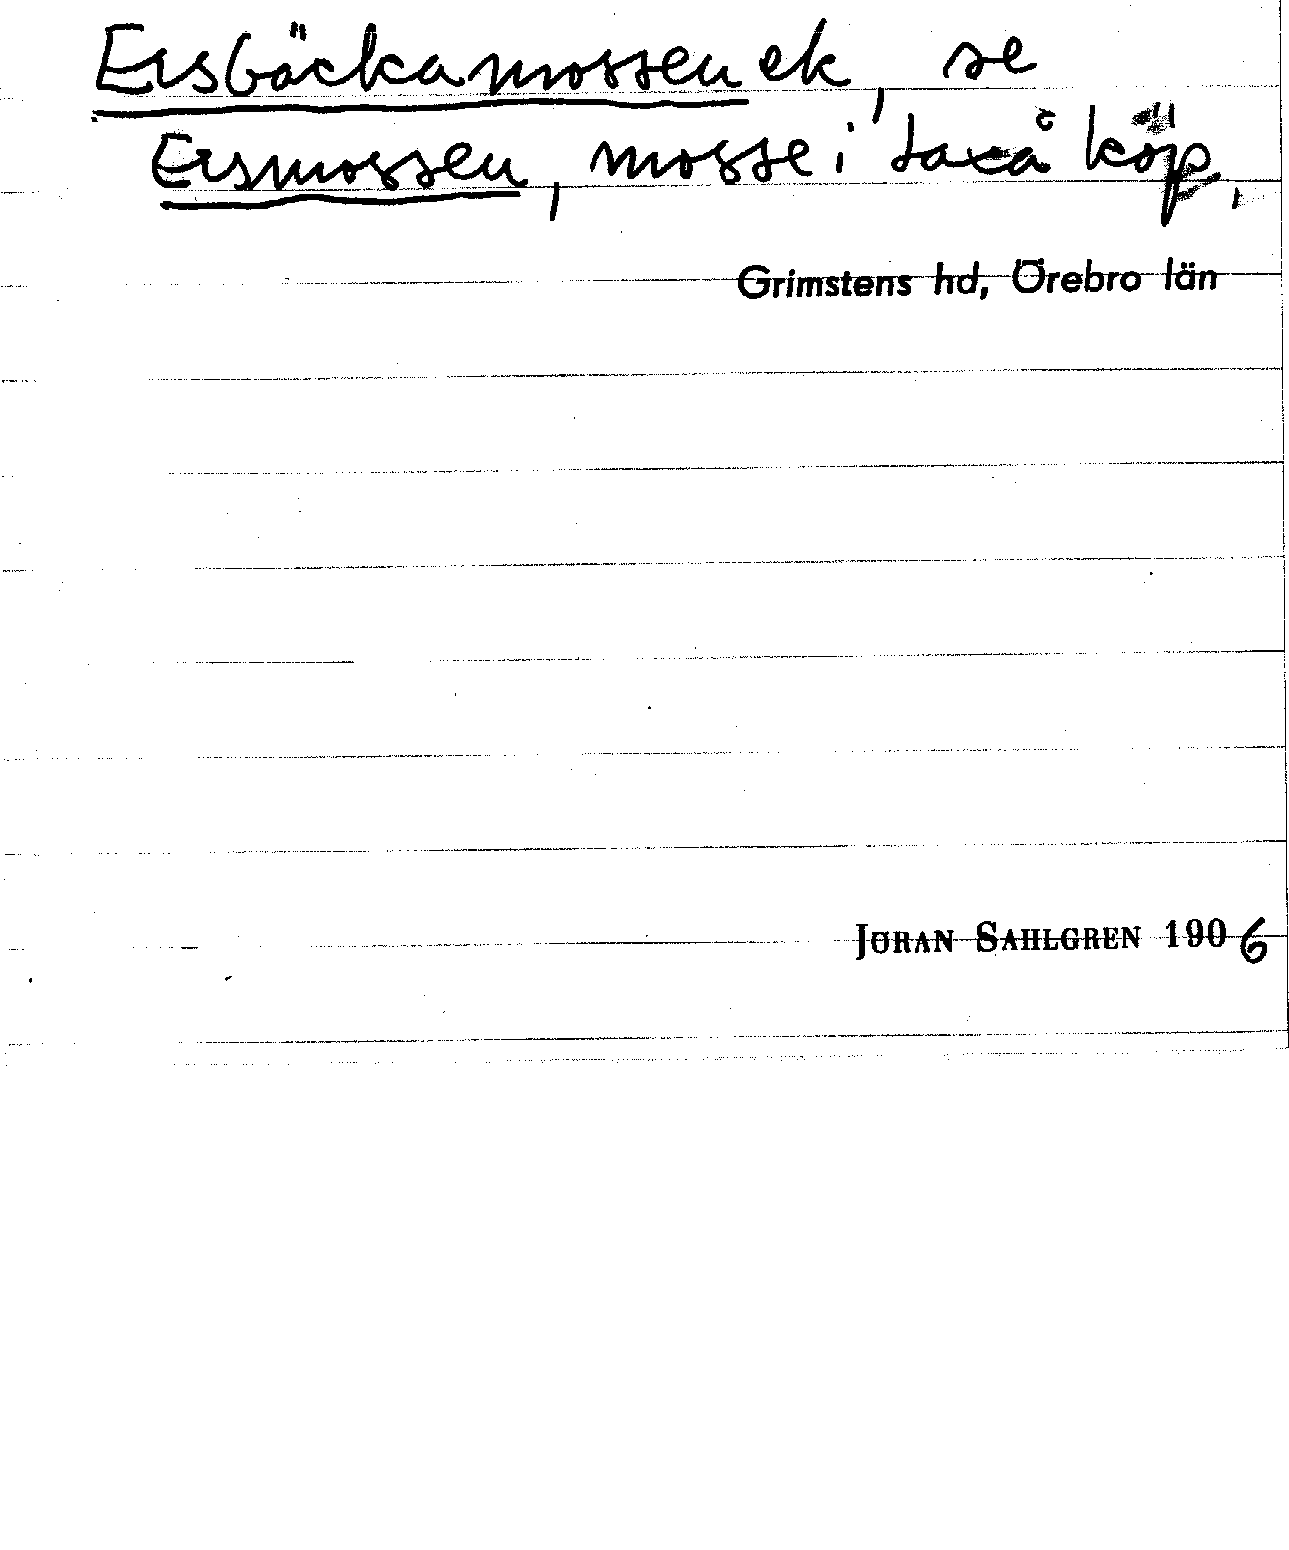 Ersbäckamossen ek, se
Ersmossen, mosse i Laxå köp.
Grimstens hd, Örebro län
JÖRAN SAHLGREN 1906